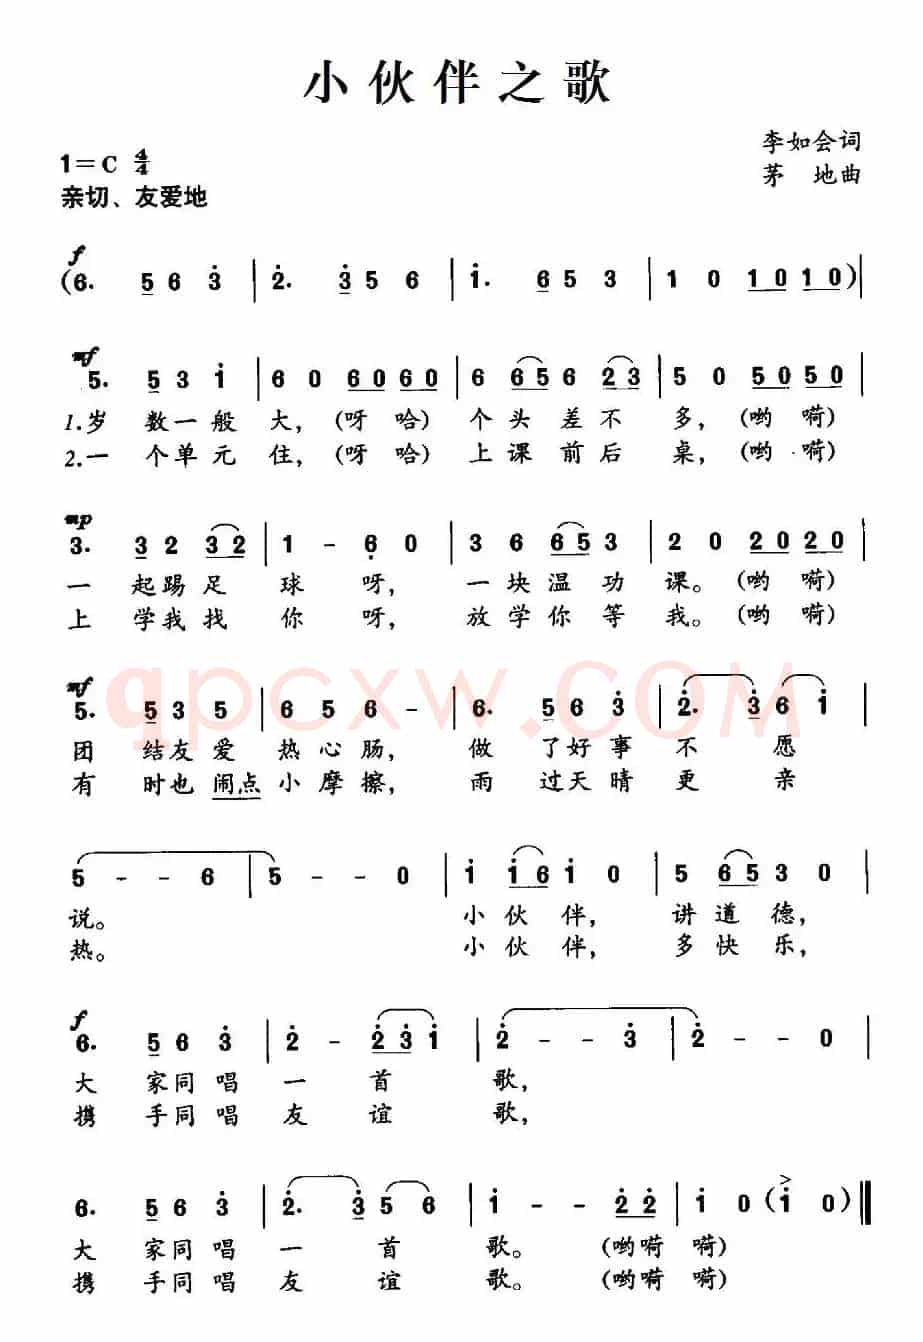 小伙伴之歌
李如会词
1=C 4/4
茅 地曲
亲切、友爱地
f
(6. 5 6 3 | 2. 3 5 6 | i. 6 5 3 | 1 0 1 0 1 0 )|
mf
5. 5 3 i | 6 0 6 0 6 0 | 6 6 5 6 2 3 | 5 0 5 0 5 0 |
1.岁 数一般 大,(呀 哈) 个头差不 多,(哟 嗬)
2.一 个单元 住,(呀 哈) 上课前后 桌,(哟 嗬)
mp
3. 3 2 3 2 | 1 - 6 0 | 3 6 6 5 3 | 2 0 2 0 2 0 |
一 起踢足 球 呀, 一块温功 课。(哟 嗬)
上 学我找 你 呀, 放学你等 我。(哟 嗬)
qpcxw.COM
mf
5. 5 3 5 | 6 5 6 - | 6. 5 6 3 | 2. 3 6 i |
团 结友爱 热心肠, 做 了好事 不 愿
有 时也闹点 小摩擦, 雨 过天晴 更 亲
5 - - 6 | 5 - - 0 | i i 6 i 0 | 5 6 5 3 0 |
说。 小伙 伴, 讲道 德,
热。 小伙 伴, 多快 乐,
f
6. 5 6 3 | 2 - 2 3 i | 2 - - 3 | 2 - - 0 |
大 家同唱 一 首 歌,
携 手同唱 友 谊 歌,
6. 5 6 3 | 2. 3 5 6 | i - - 2 2 | i 0 ( i 0 )‖
大 家同唱 一 首 歌。 (哟嗬 嗬)
携 手同唱 友 谊 歌。 (哟嗬 嗬)